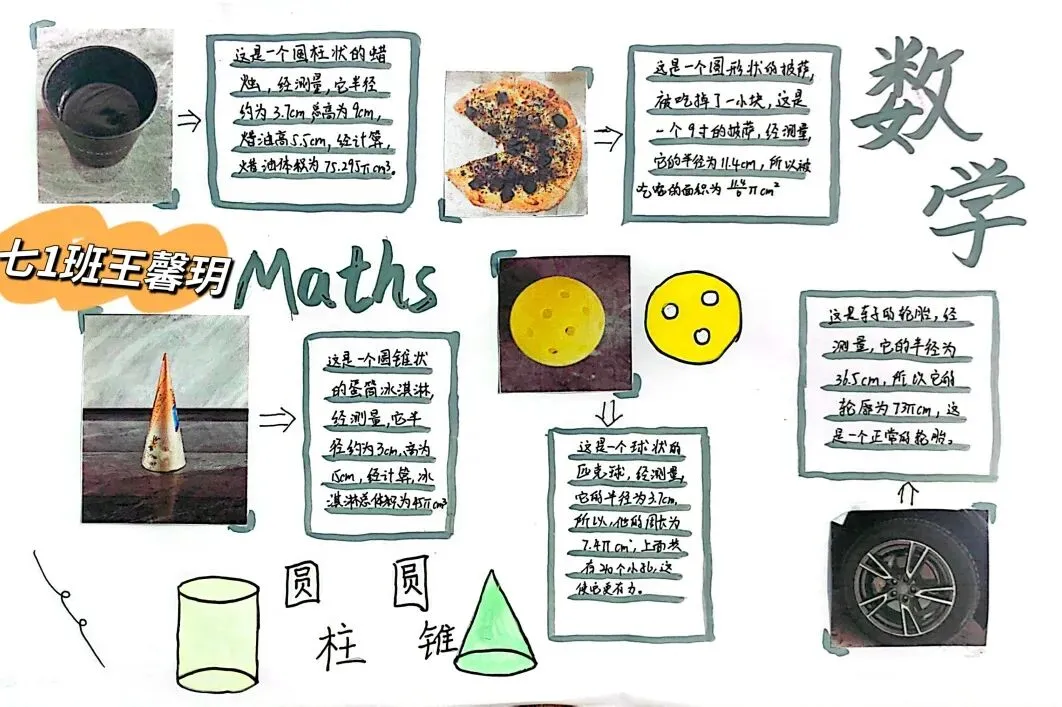 这是一个圆柱状的蜡
烛，经测量，它半径
约为3.7cm 总高为9cm，
蜡油高5.5cm，经计算，
蜡油体积为75.295πcm³。
这是一个圆形状的披萨，
被吃掉了一小块，这是
一个9寸的披萨，经测量，
它的半径为11.4cm，所以被
吃掉的面积为 11.4/6 πcm²
数
学
七1班王馨玥
Maths
这是一个圆锥状
的蛋筒冰淇淋，
经测量，它半
径约为3cm，高为
15cm，经计算，冰
淇淋总体积为45πcm³
这是一个球状的
匹克球，经测量，
它的半径为3.7cm，
所以，他的周长为
7.4πcm，上面共
有40个小孔，这
使它更有力。
这是车子的轮胎，经
测量，它的半径为
36.5cm，所以它的
轮廓为73πcm，这
是一个正常的轮胎。
圆
柱
圆
锥